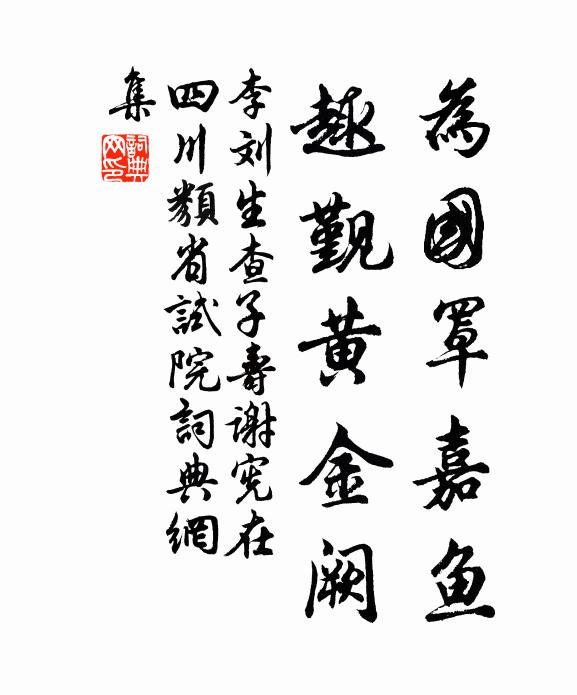 為國罩嘉魚
趣覲黃金闕
李刘生查子壽謝宪在
四川類省試院詞典網
集
詞典
网印